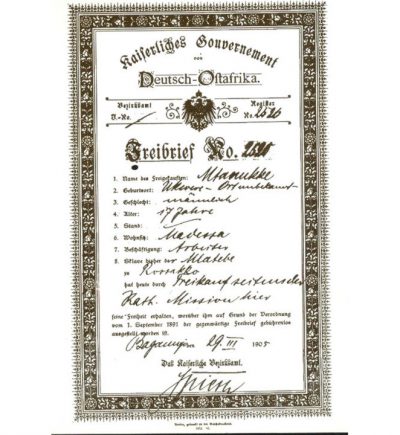 Kaiserliches Gouvernement
von
Deutsch-Ostafrika.
Bezirksamt
J.-No.
Register
No. 2526
Freibrief No.
1. Name des Freigekauften:
2. Geburtsort: Ukerewe - Ort unbekannt
3. Geschlecht: männlich
4. Alter: 17 Jahre
5. Stand:
6. Wohnsitz:
7. Beschäftigung: Arbeiter
8. Sklave bisher der
zu
hat heute durch Freikauf seitens der
Kath. Mission hier
seine Freiheit erhalten, worüber ihm auf Grund der Verordnung
vom 1. September 1891 der gegenwärtige Freibrief gebührenlos
ausgestellt worden ist.
Bagamoyo den 29. III 1905
Das Kaiserliche Bezirksamt.